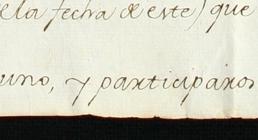 de la fecha de este) que
uno, y participaros